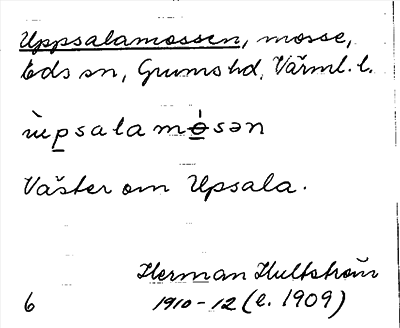 Uppsalamossen, mosse,
Eds sn, Grums hd, Värml. l.
ùpsalamósən
Väster om Upsala.
Herman Hultström
6 1910-12 (e. 1909)